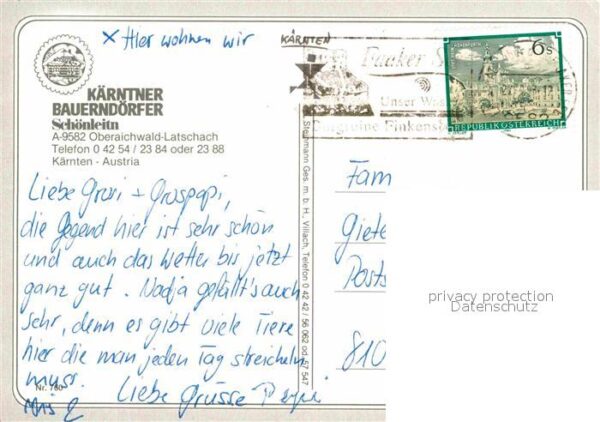 x Hier wohnen wir
KÄRNTEN
Faaker S
Unser Was
Burgruine Finkenst
6s
REPUBLIK ÖSTERREICH
KÄRNTNER
BAUERNDÖRFER
Schönleitn
A-9582 Oberaichwald-Latschach
Telefon 0 42 54 / 23 84 oder 23 88
Kärnten - Austria
Liebe Gromi + Grospapi,
die Gegend hier ist sehr schön
und auch das Wetter bis jetzt
ganz gut. Nadja gefällt's auch
sehr, denn es gibt viele Tiere
hier die man jeden Tag streicheln
muss.
Liebe Grüsse
Nr. 760
Ges. m. b. H., Villach, Telefon 0 42 42 / 56 062 od. 57 547
Fam
Giete
Posts
810
privacy protection
Datenschutz